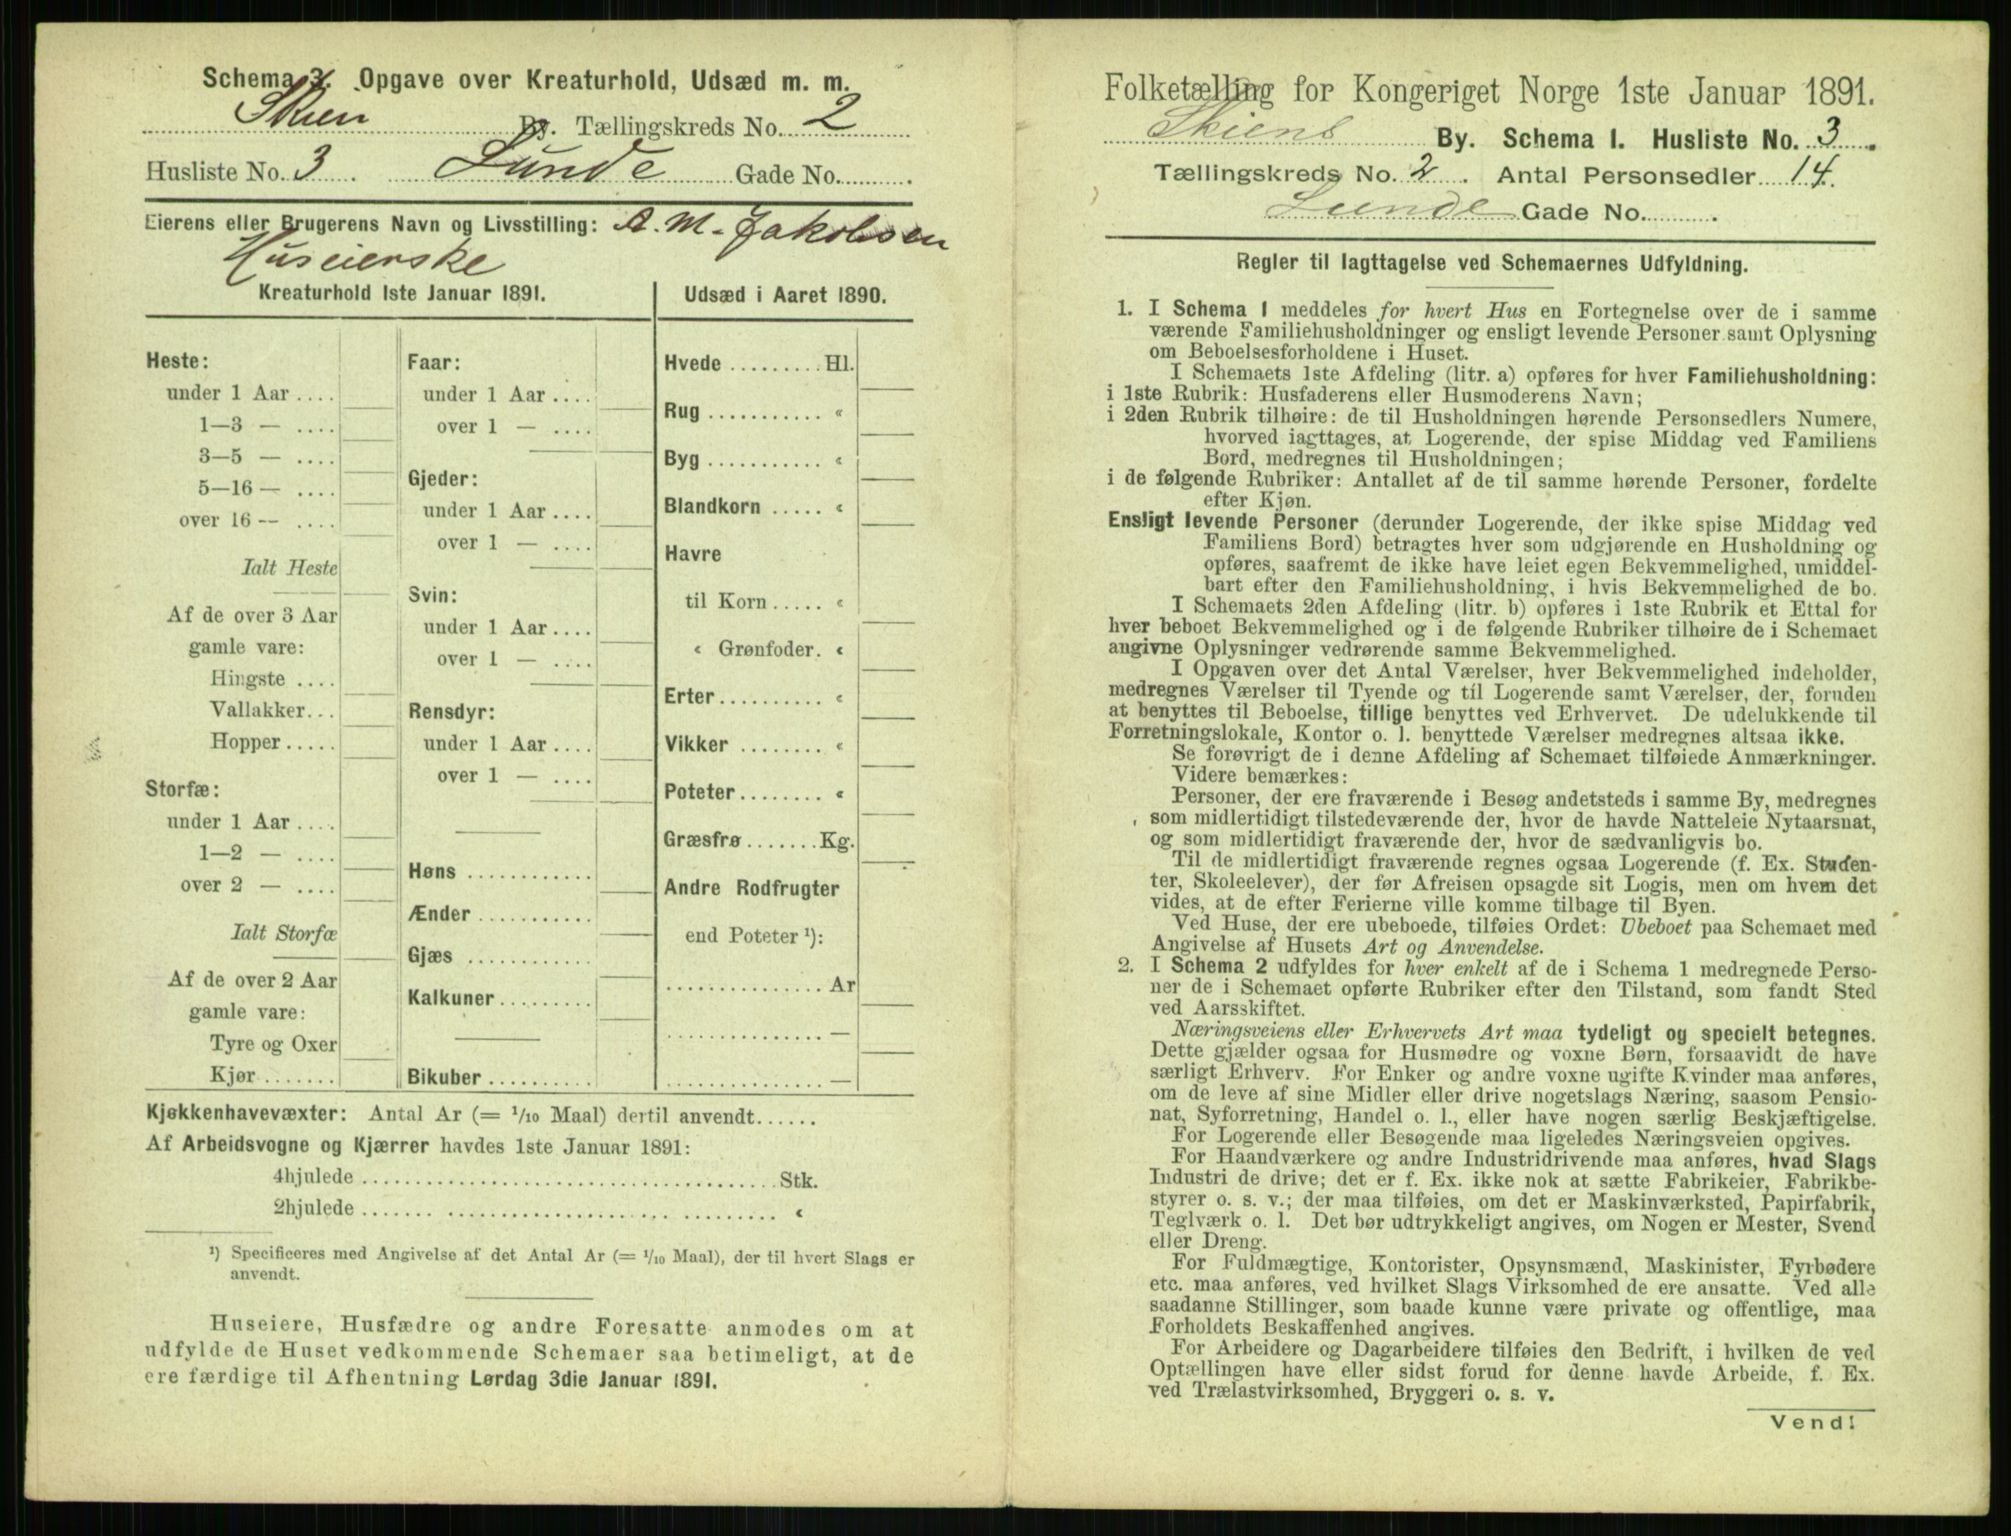 Schema 3. Opgave over Kreaturhold, Udsæd m. m.
Skien By. Tællingskreds No. 2
Husliste No. 3 Lunde Gade No.
Eierens eller Brugerens Navn og Livsstilling: A. M. Jakobsen
Huseierske
Kreaturhold 1ste Januar 1891.
Heste:
under 1 Aar ....
1—3 — ....
3—5 — ....
5—16 — ....
over 16 — ....
Ialt Heste
Af de over 3 Aar
gamle vare:
Hingste ....
Vallakker...
Hopper.....
Storfæ:
under 1 Aar ....
1—2 — ....
over 2 — ....
Ialt Storfæ
Af de over 2 Aar
gamle vare:
Tyre og Oxer
Kjør.......
Faar:
under 1 Aar ....
over 1 — ....
Gjeder:
under 1 Aar ....
over 1 — ....
Svin:
under 1 Aar ....
over 1 — ....
Rensdyr:
under 1 Aar ....
over 1 — ....
Høns ............
Ænder...........
Gjæs ............
Kalkuner.........
Bikuber..........
Udsæd i Aaret 1890.
Hvede ......... Hl.
Rug ........... «
Byg ........... «
Blandkorn ..... «
Havre
til Korn..... «
« Grønfoder. «
Erter.......... «
Vikker ........ «
Poteter........ «
Græsfrø.......Kg.
Andre Rodfrugter
end Poteter ¹):
............... Ar
............... —
............... —
Kjøkkenhavevæxter: Antal Ar (= 1/10 Maal) dertil anvendt......
Af Arbeidsvogne og Kjærrer havdes 1ste Januar 1891:
4hjulede ....................................... Stk.
2hjulede ....................................... «
¹) Specificeres med Angivelse af det Antal Ar (= 1/10 Maal), der til hvert Slags er
anvendt.
Huseiere, Husfædre og andre Foresatte anmodes om at
udfylde de Huset vedkommende Schemaer saa betimeligt, at de
ere færdige til Afhentning Lørdag 3die Januar 1891.
Folketælling for Kongeriget Norge 1ste Januar 1891.
Skiens By. Schema I. Husliste No. 3.
Tællingskreds No. 2. Antal Personsedler 14.
Lunde Gade No. .
Regler til Iagttagelse ved Schemaernes Udfyldning.
1. I Schema 1 meddeles for hvert Hus en Fortegnelse over de i samme
værende Familiehusholdninger og ensligt levende Personer samt Oplysning
om Beboelsesforholdene i Huset.
I Schemaets 1ste Afdeling (litr. a) opføres for hver Familiehusholdning:
i 1ste Rubrik: Husfaderens eller Husmoderens Navn;
i 2den Rubrik tilhøire: de til Husholdningen hørende Personsedlers Numere,
hvorved iagttages, at Logerende, der spise Middag ved Familiens
Bord, medregnes til Husholdningen;
i de følgende Rubriker: Antallet af de til samme hørende Personer, fordelte
efter Kjøn.
Ensligt levende Personer (derunder Logerende, der ikke spise Middag ved
Familiens Bord) betragtes hver som udgjørende en Husholdning og
opføres, saafremt de ikke have leiet egen Bekvemmelighed, umiddel-
bart efter den Familiehusholdning, i hvis Bekvemmelighed de bo.
I Schemaets 2den Afdeling (litr. b) opføres i 1ste Rubrik et Ettal for
hver beboet Bekvemmelighed og i de følgende Rubriker tilhøire de i Schemaet
angivne Oplysninger vedrørende samme Bekvemmelighed.
I Opgaven over det Antal Værelser, hver Bekvemmelighed indeholder,
medregnes Værelser til Tyende og til Logerende samt Værelser, der, foruden
at benyttes til Beboelse, tillige benyttes ved Erhvervet. De udelukkende til
Forretningslokale, Kontor o. l. benyttede Værelser medregnes altsaa ikke.
Se forøvrigt de i denne Afdeling af Schemaet tilføiede Anmærkninger.
Videre bemærkes:
Personer, der ere fraværende i Besøg andetsteds i samme By, medregnes
som midlertidigt tilstedeværende der, hvor de havde Natteleie Nytaarsnat,
og som midlertidigt fraværende der, hvor de sædvanligvis bo.
Til de midlertidigt fraværende regnes ogsaa Logerende (f. Ex. Studen-
ter, Skoleelever), der før Afreisen opsagde sit Logis, men om hvem det
vides, at de efter Ferierne ville komme tilbage til Byen.
Ved Huse, der ere ubeboede, tilføies Ordet: Ubeboet paa Schemaet med
Angivelse af Husets Art og Anvendelse.
2. I Schema 2 udfyldes for hver enkelt af de i Schema 1 medregnede Perso-
ner de i Schemaet opførte Rubriker efter den Tilstand, som fandt Sted
ved Aarsskiftet.
Næringsveiens eller Erhvervets Art maa tydeligt og specielt betegnes.
Dette gjælder ogsaa for Husmødre og voxne Børn, forsaavidt de have
særligt Erhverv. For Enker og andre voxne ugifte Kvinder maa anføres,
om de leve af sine Midler eller drive nogetslags Næring, saasom Pensio-
nat, Syforretning, Handel o. l., eller have nogen særlig Beskjæftigelse.
For Logerende eller Besøgende maa ligeledes Næringsveien opgives.
For Haandværkere og andre Industridrivende maa anføres, hvad Slags
Industri de drive; det er f. Ex. ikke nok at sætte Fabrikeier, Fabrikbe-
styrer o. s. v.; der maa tilføies, om det er Maskinværksted, Papirfabrik,
Teglværk o. l. Det bør udtrykkeligt angives, om Nogen er Mester, Svend
eller Dreng.
For Fuldmægtige, Kontorister, Opsynsmænd, Maskinister, Fyrbødere
etc. maa anføres, ved hvilket Slags Virksomhed de ere ansatte. Ved alle
saadanne Stillinger, som baade kunne være private og offentlige, maa
Forholdets Beskaffenhed angives.
For Arbeidere og Dagarbeidere tilføies den Bedrift, i hvilken de ved
Optællingen have eller sidst forud for denne havde Arbeide, f. Ex.
ved Trælastvirksomhed, Bryggeri o. s. v.
Vend!